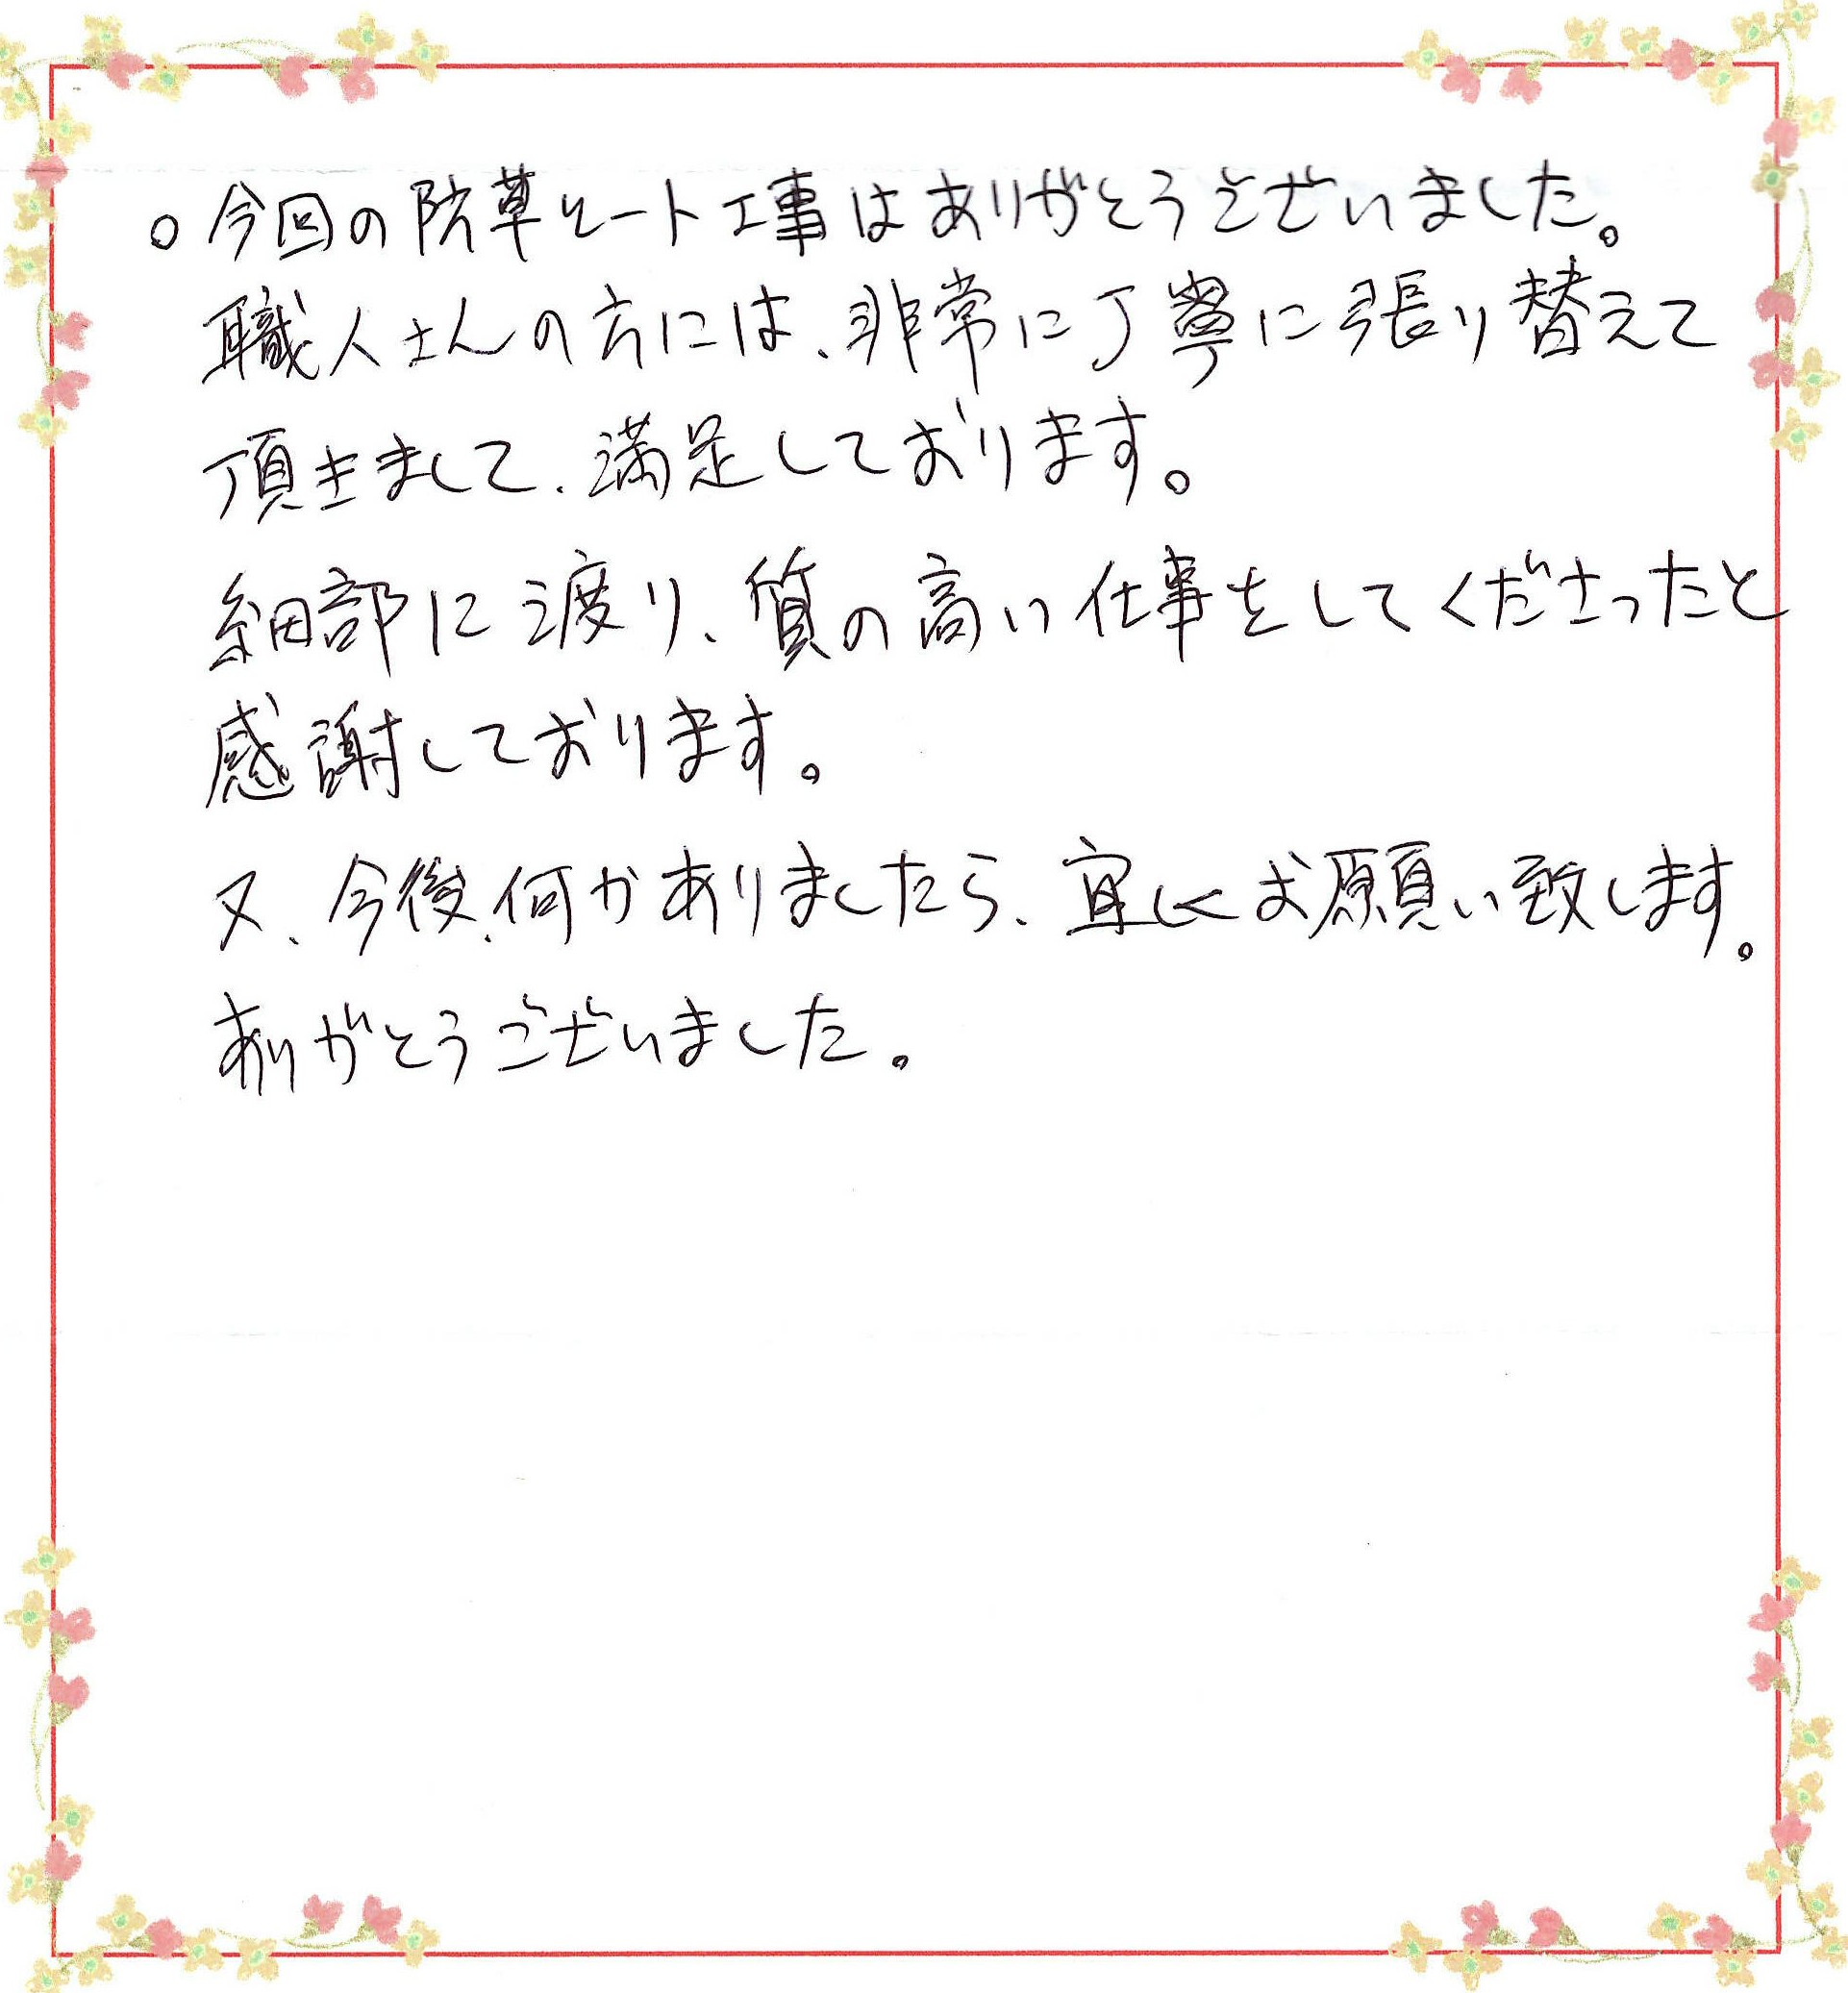 ○今回の防草シート工事はありがとうございました。
職人さんの方には、非常に丁寧に張り替えて
頂きまして、満足しております。
細部に渡り、質の高い仕事をしてくださったと
感謝しております。
又、今後、何かありましたら、宜しくお願い致します。
ありがとうございました。